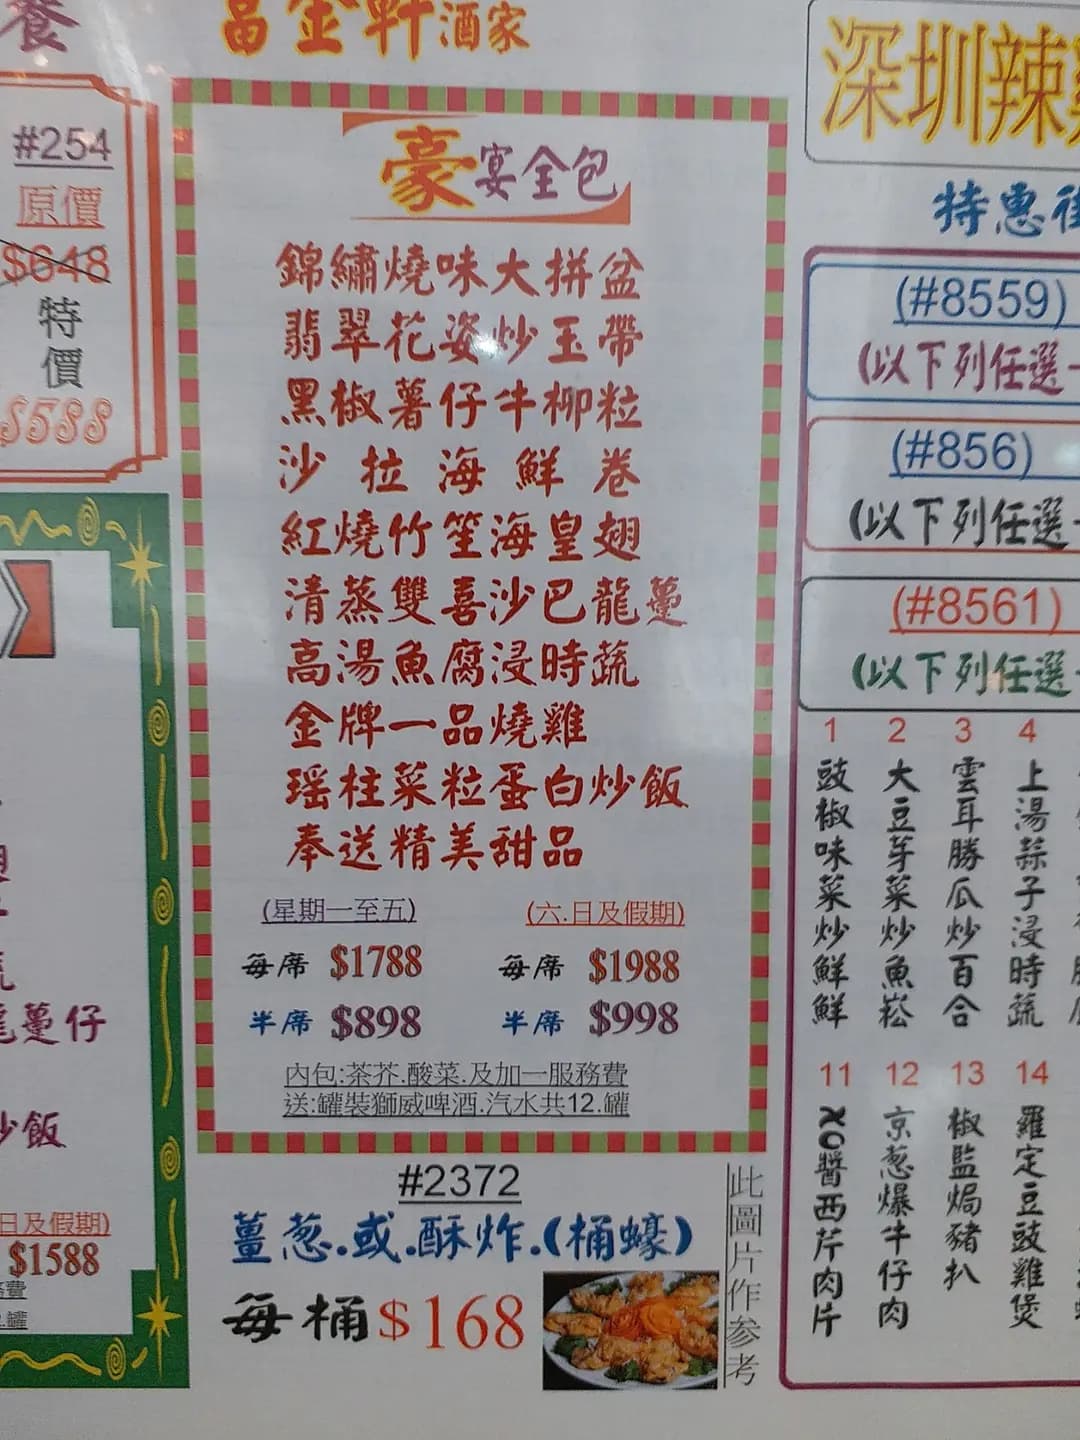 富金軒酒家
豪宴全包
錦繡燒味大拼盆
翡翠花姿炒玉帶
黑椒薯仔牛柳粒
沙拉海鮮卷
紅燒竹笙海皇翅
清蒸雙喜沙巴龍躉
高湯魚腐浸時蔬
金牌一品燒雞
瑶柱菜粒蛋白炒飯
奉送精美甜品
(星期一至五)
每席 $1788
半席 $898
(六.日及假期)
每席 $1988
半席 $998
內包:茶芥.酸菜.及加一服務費
送:罐裝獅威啤酒.汽水共12.罐
#2372
薑葱.或.酥炸.(桶蠔)
每桶$168
此圖片作參考
餐
#254
原價
$648
特價
$588
龍躉仔
炒飯
日及假期)
$1588
務費
.罐
深圳辣
特惠
(#8559)
(以下列任選
(#856)
(以下列任選
(#8561)
(以下列任選
1
豉椒味菜炒鮮鮮
2
大豆芽菜炒魚崧
3
雲耳勝瓜炒百合
4
上湯蒜子浸時蔬
11
XO醬西芹肉片
12
京葱爆牛仔肉
13
椒監焗豬扒
14
羅定豆豉雞煲